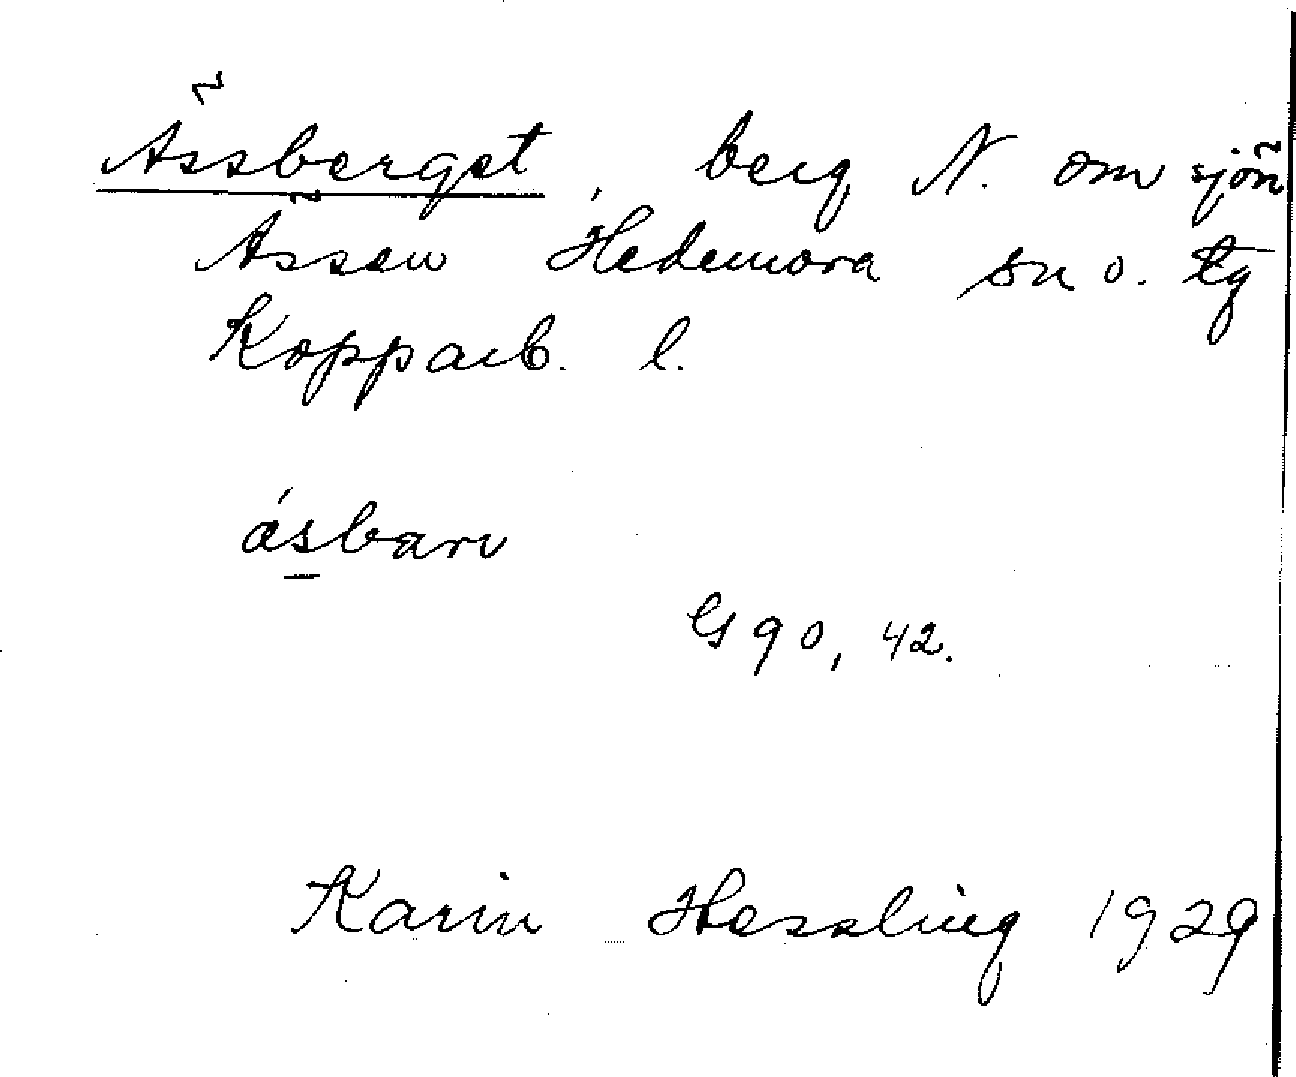 Ässberget, berg N. om sjön
Ässen Hedemora sn o. tg
Kopparb. l.
ásbarv
G 90, 42.
Karin Hessling 1929